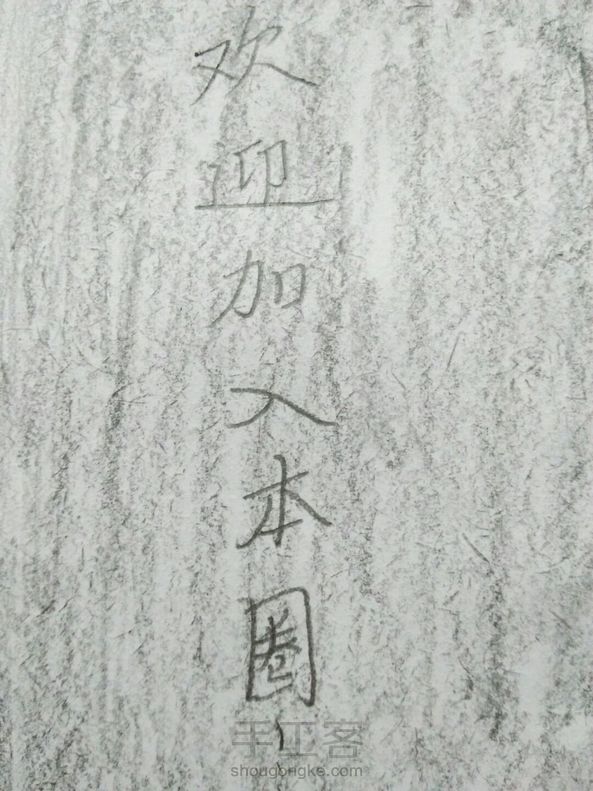 欢迎加入本圈~
手工客
shougongke.com